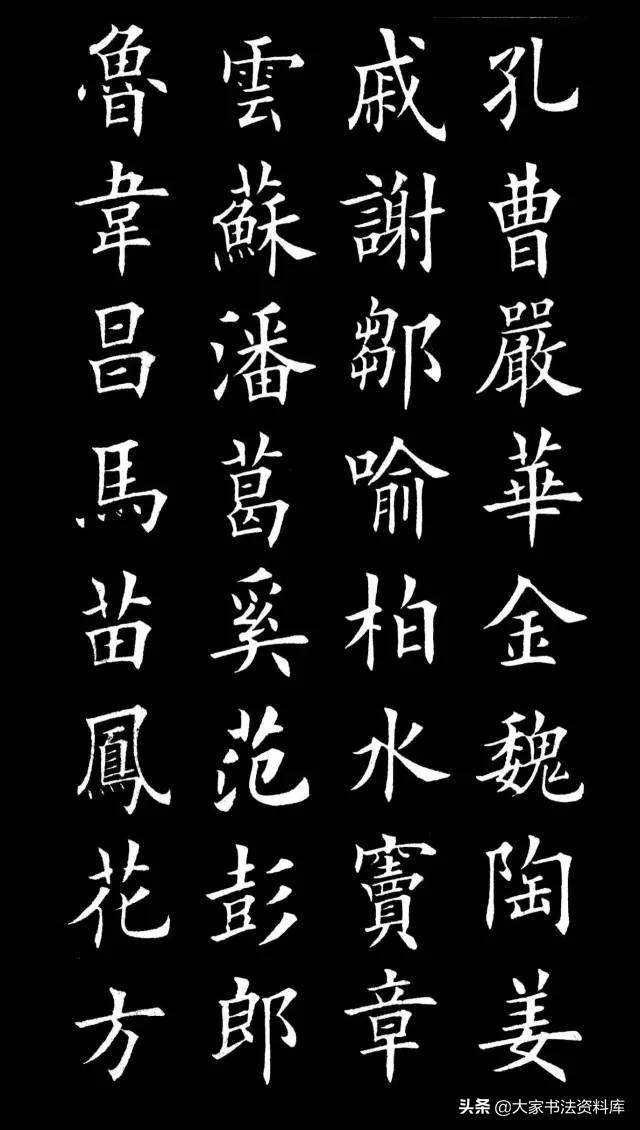 孔曹嚴華金魏陶姜
戚謝鄒喻柏水竇章
雲蘇潘葛奚范彭郎
魯韋昌馬苗鳳花方
头条 @大家书法资料库